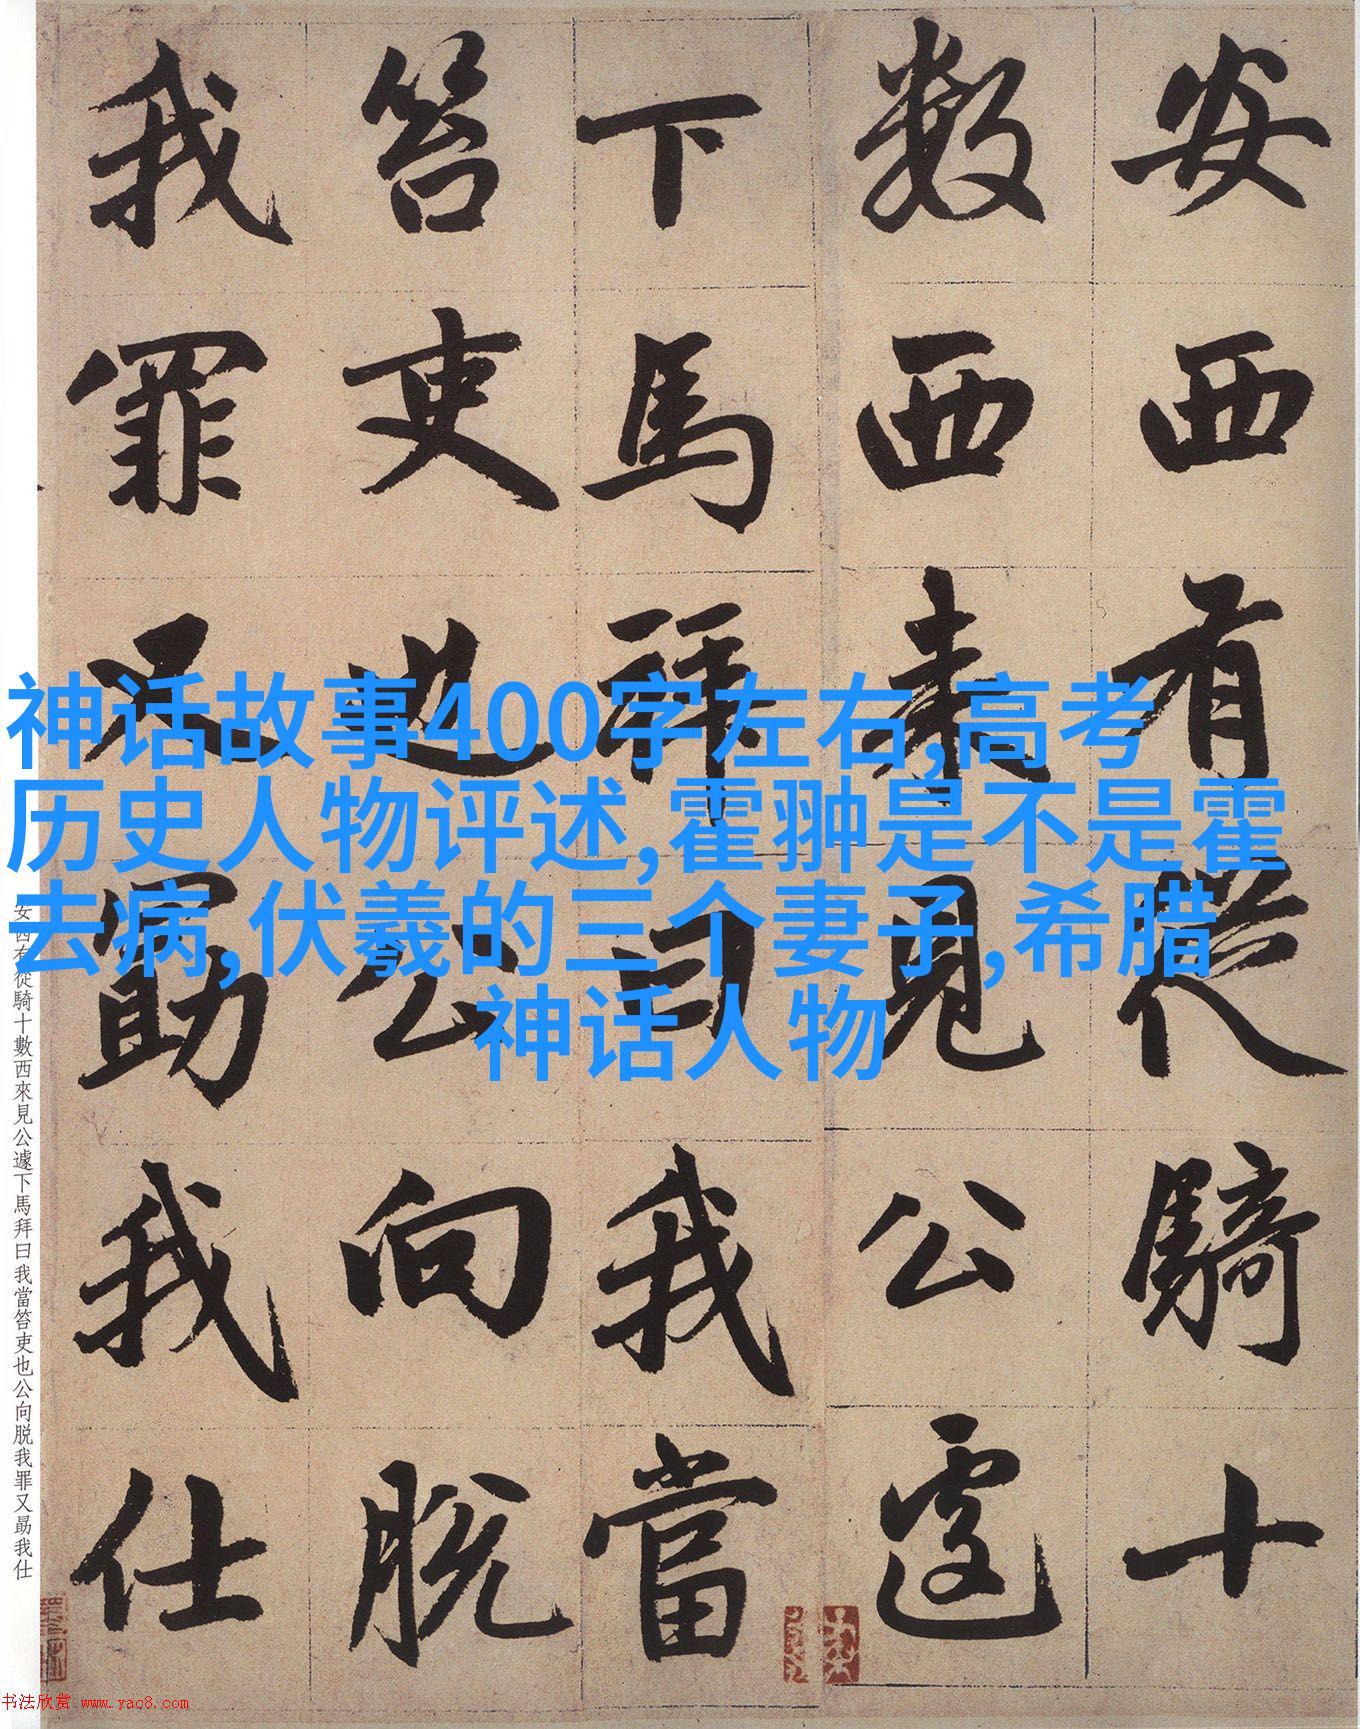 安西有從騎十
數西来見公遽
下馬拜曰我當
笞吏也公向脱
我罪又勗我仕
神话故事400字左右,高考
历史人物评述,霍翀是不是霍
去病,伏羲的三个妻子,希腊
神话人物
安西有從騎十數西來見公遽下馬拜曰我當笞吏也公向脱我罪又勗我仕
书法欣赏 www.yac8.com